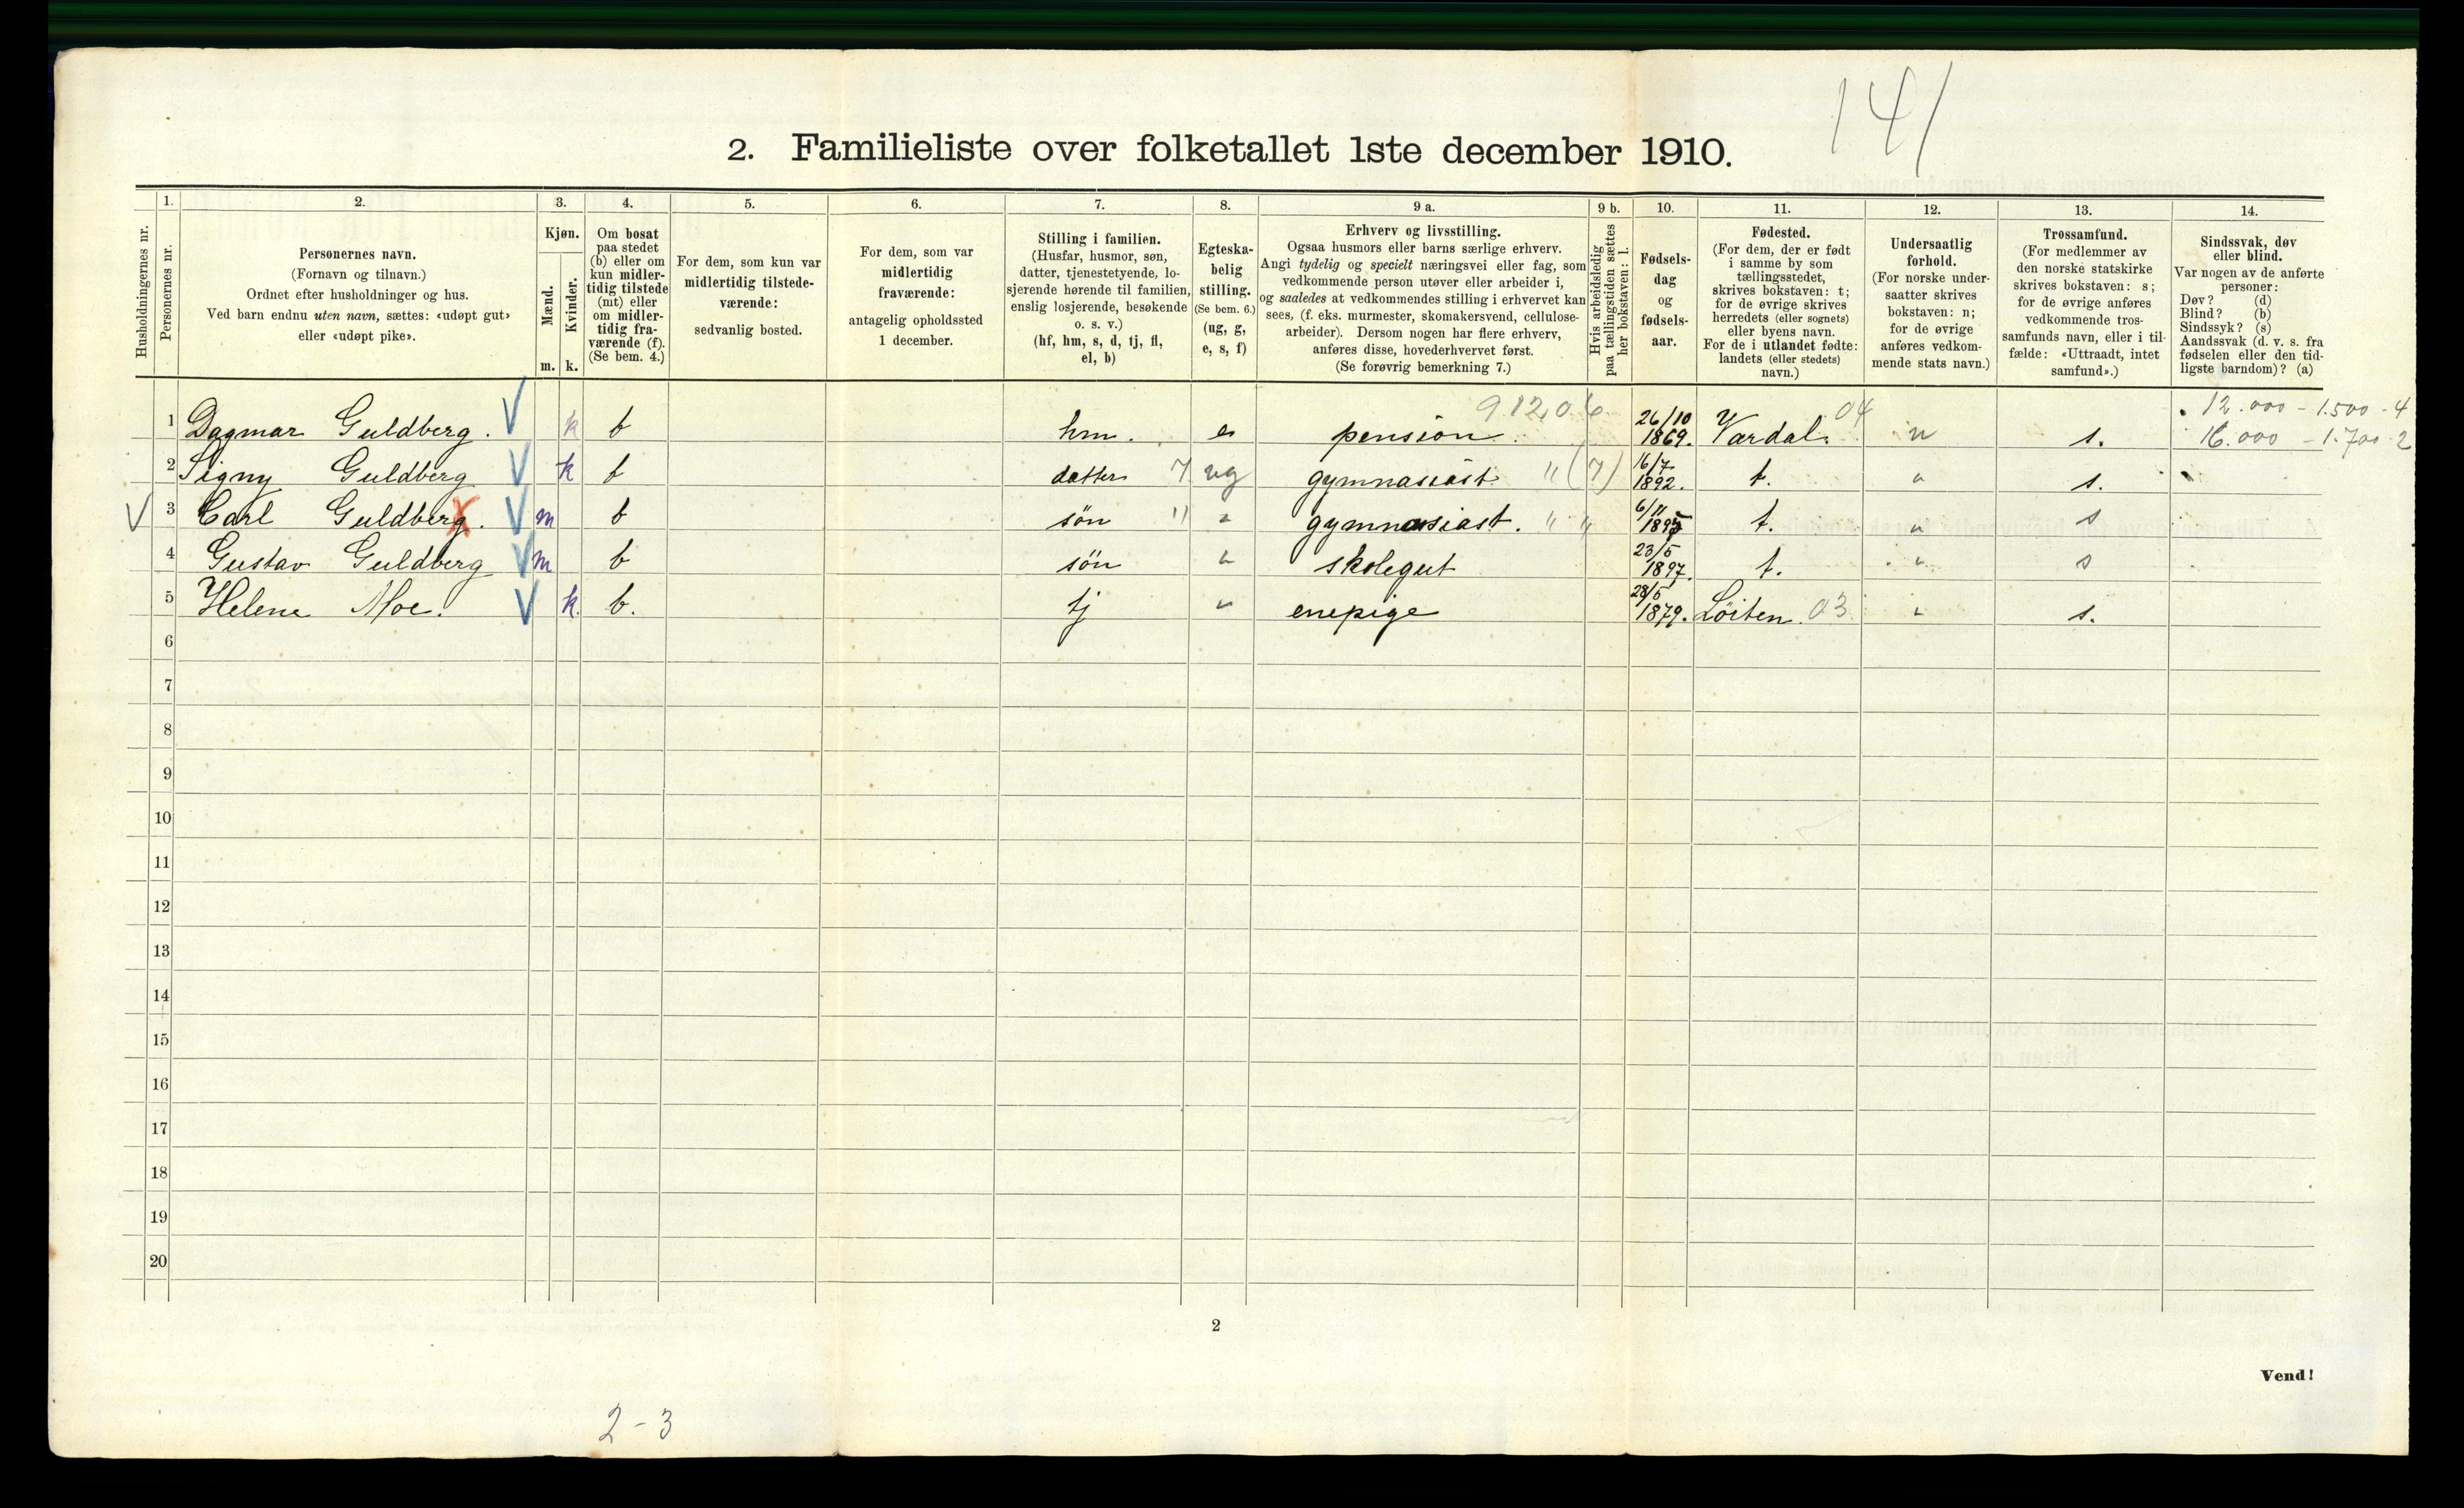 141
2. Familieliste over folketallet 1ste december 1910.
Husholdningernes nr.
1.
Personernes nr.
2.
Personernes navn.
(Fornavn og tilnavn.)
Ordnet efter husholdninger og hus.
Ved barn endnu uten navn, sættes: «udøpt gut»
eller «udøpt pike».
3.
Kjøn.
Mænd.
Kvinder.
m. k.
4.
Om bosat
paa stedet
(b) eller om
kun midler-
tidig tilstede
(mt) eller
om midler-
tidig fra-
værende (f).
(Se bem. 4.)
5.
For dem, som kun var
midlertidig tilstede-
værende:
sedvanlig bosted.
6.
For dem, som var
midlertidig
fraværende:
antagelig opholdssted
1 december.
7.
Stilling i familien.
(Husfar, husmor, søn,
datter, tjenestetyende, lo-
sjerende hørende til familien,
enslig losjerende, besøkende
o. s. v.)
(hf, hm, s, d, tj, fl,
el, b)
8.
Egteska-
belig
stilling.
(Se bem. 6.)
(ug, g,
e, s, f)
9 a.
Erhverv og livsstilling.
Ogsaa husmors eller barns særlige erhverv.
Angi tydelig og specielt næringsvei eller fag, som
vedkommende person utøver eller arbeider i,
og saaledes at vedkommendes stilling i erhvervet kan
sees, (f. eks. murmester, skomakersvend, cellulose-
arbeider). Dersom nogen har flere erhverv,
anføres disse, hovederhvervet først.
(Se forøvrig bemerkning 7.)
9 b.
Hvis arbeidsledig
paa tællingstiden sættes
her bokstaven: l.
10.
Fødsels-
dag
og
fødsels-
aar.
11.
Fødested.
(For dem, der er født
i samme by som
tællingsstedet,
skrives bokstaven: t;
for de øvrige skrives
herredets (eller sognets)
eller byens navn.
For de i utlandet fødte:
landets (eller stedets)
navn.)
12.
Undersaatlig
forhold.
(For norske under-
saatter skrives
bokstaven: n;
for de øvrige
anføres vedkom-
mende stats navn.)
13.
Trossamfund.
(For medlemmer av
den norske statskirke
skrives bokstaven: s;
for de øvrige anføres
vedkommende tros-
samfunds navn, eller i til-
fælde: «Uttraadt, intet
samfund».)
14.
Sindssvak, døv
eller blind.
Var nogen av de anførte
personer:
Døv? (d)
Blind? (b)
Sindssyk? (s)
Aandssvak (d. v. s. fra
fødselen eller den tid-
ligste barndom)? (a)
9.12.06 04 12.000 - 1.500 - 4
1 Dagmar Guldberg. k b hm. e pension. 26/10 1869. Vardal. n s. 16.000 - 1.700 2
2 Signy Guldberg k b datter 7 ug gymnasiast " (7) 16/7 1892. t. " s.
3 Carl Guldberg. m b søn " " gymnasiast. " " 6/11 1895 t. " s
4 Gustav Guldberg m b søn " skolegut 23/5 1897. t. " s
5 Helene Moe. k. b. tj " enepige 28/5 1879. Löiten. 03 " s.
6
7
8
9
10
11
12
13
14
15
16
17
18
19
20
2
Vend!
2-3